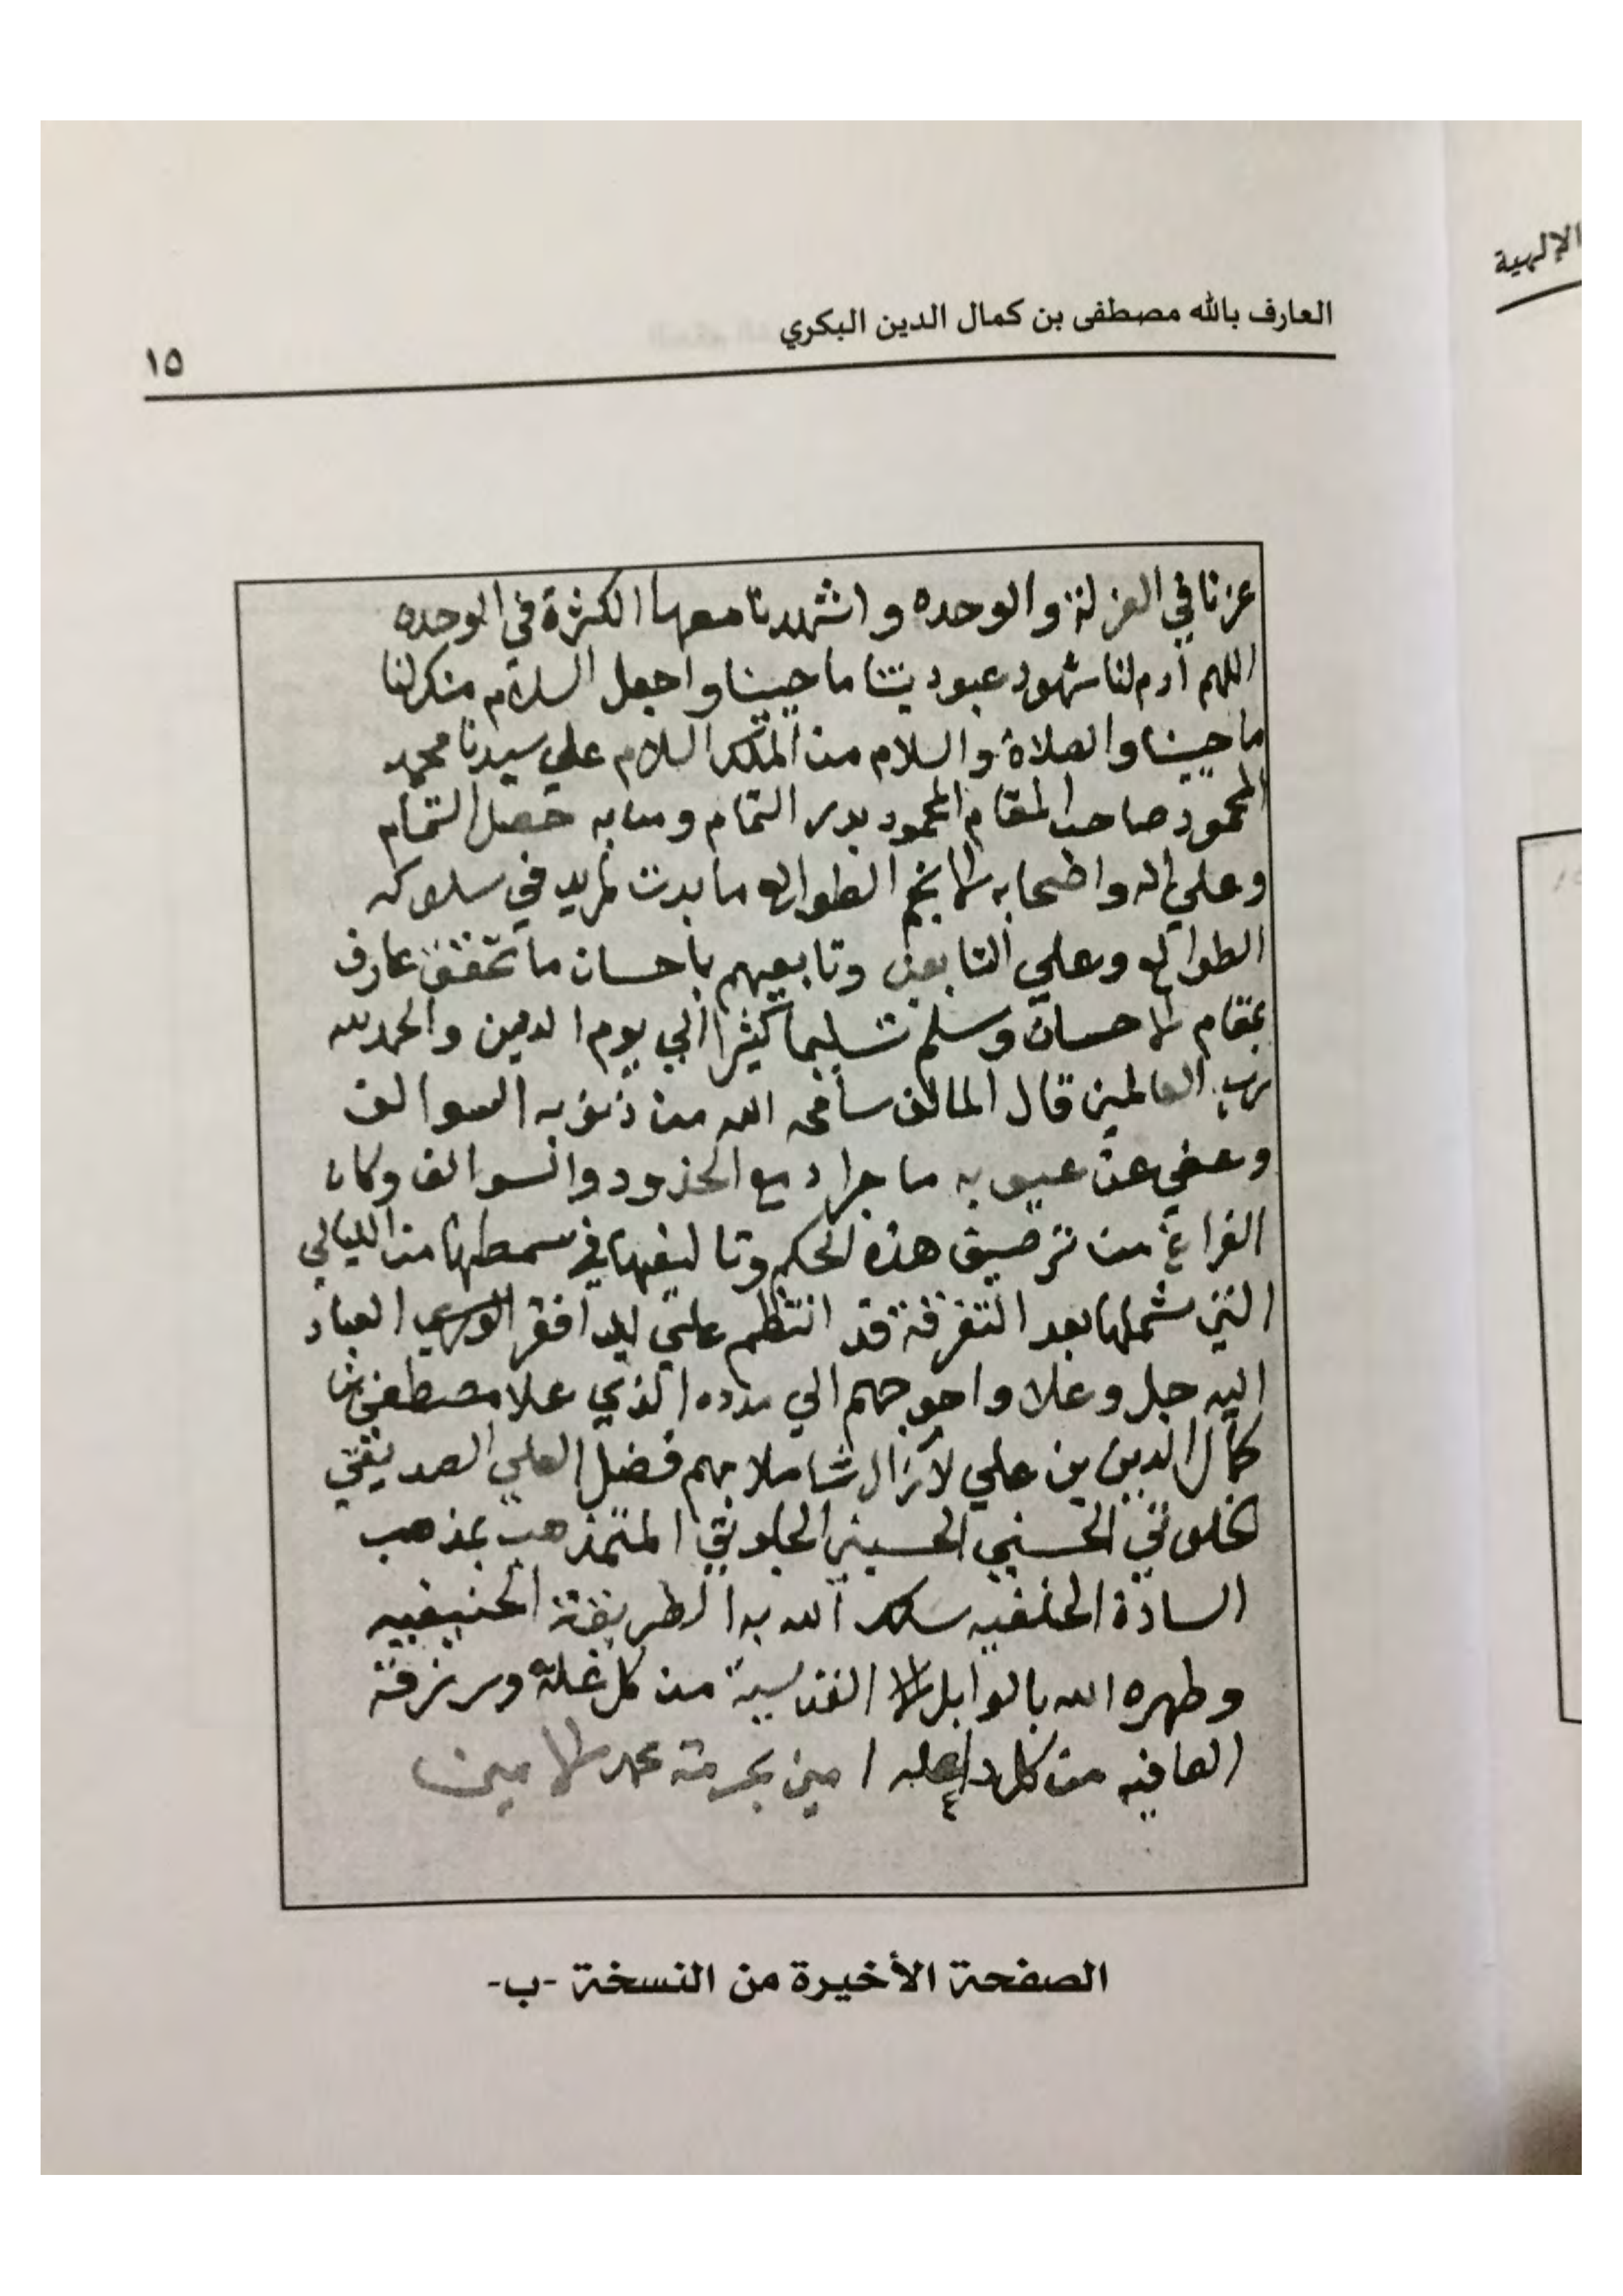 الإلهية
العارف بالله مصطفى بن كمال الدين البكري
١٥
عزنا في العزلة والوحده واشهدنا معها الكثرة في الوحده
اللهم ادم لنا شهود عبوديتنا ما حيينا واجعل السلام منك لنا
ما حيينا والصلاة والسلام من الملك السلام علي سيدنا محمد
المحمود صاحب المقام المحمود بدر التمام ومن به حصل التمام
وعلي اله واصحابه الانجم الطوالع ما بدت لمريد في سلوكه
الطوالع وعلي التابعين وتابعيهم باحسان ما تحقق عارف
بمقام الاحسان وسلم تسليما كثيرا الي يوم الدين والحمد لله
رب العالمين قال المالف سامحه الله من ذنوبه السوالف
وعفي عن عيوبه ما جرا دمع الخدود والسوالف وكان
الفراغ من ترصيف هذه الحكم وتاليفها في سمطها من الليالي
التي شملها بعد التفرقة قد انتظم علي يد افقر الوري العباد
اليه جل وعلا واحوجهم الي مدده الذي علا مصطفي بن
كمال الدين بن علي لا زال شاملا بهم فضل العلي الصديقي
الخلوتي الحسني الحسيني الجلوتي المتمذهب بمذهب
السادة الحنفيه سلك الله به الطريقة الحنيفيه
وطهره الله بالوابل القدسية من كل غلة ورزقة
العافيه من كل داء علة امين بحرمة محمد الامين
الصفحة الأخيرة من النسخة -ب-